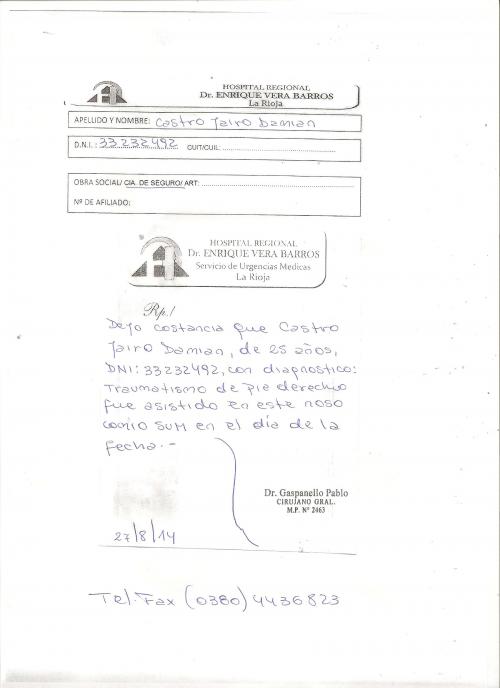 HOSPITAL REGIONAL
Dr. ENRIQUE VERA BARROS
La Rioja
APELLIDO Y NOMBRE: Castro Jairo Damian
D.N.I.: 33232492 CUIT/CUIL:
OBRA SOCIAL/ CIA. DE SEGURO/ ART:
Nº DE AFILIADO:
HOSPITAL REGIONAL
Dr. ENRIQUE VERA BARROS
Servicio de Urgencias Medicas
La Rioja
Rp./
Dejo costancia que Castro
Jairo Damian, de 25 años,
DNI: 33232492, con diagnostico:
Traumatismo de pie derecho
fue asistido en este noso
comio SUM en el día de la
fecha.-
Dr. Gaspanello Pablo
CIRUJANO GRAL.
M.P. Nº 2463
27/8/14
Tel. Fax (0380) 4436823